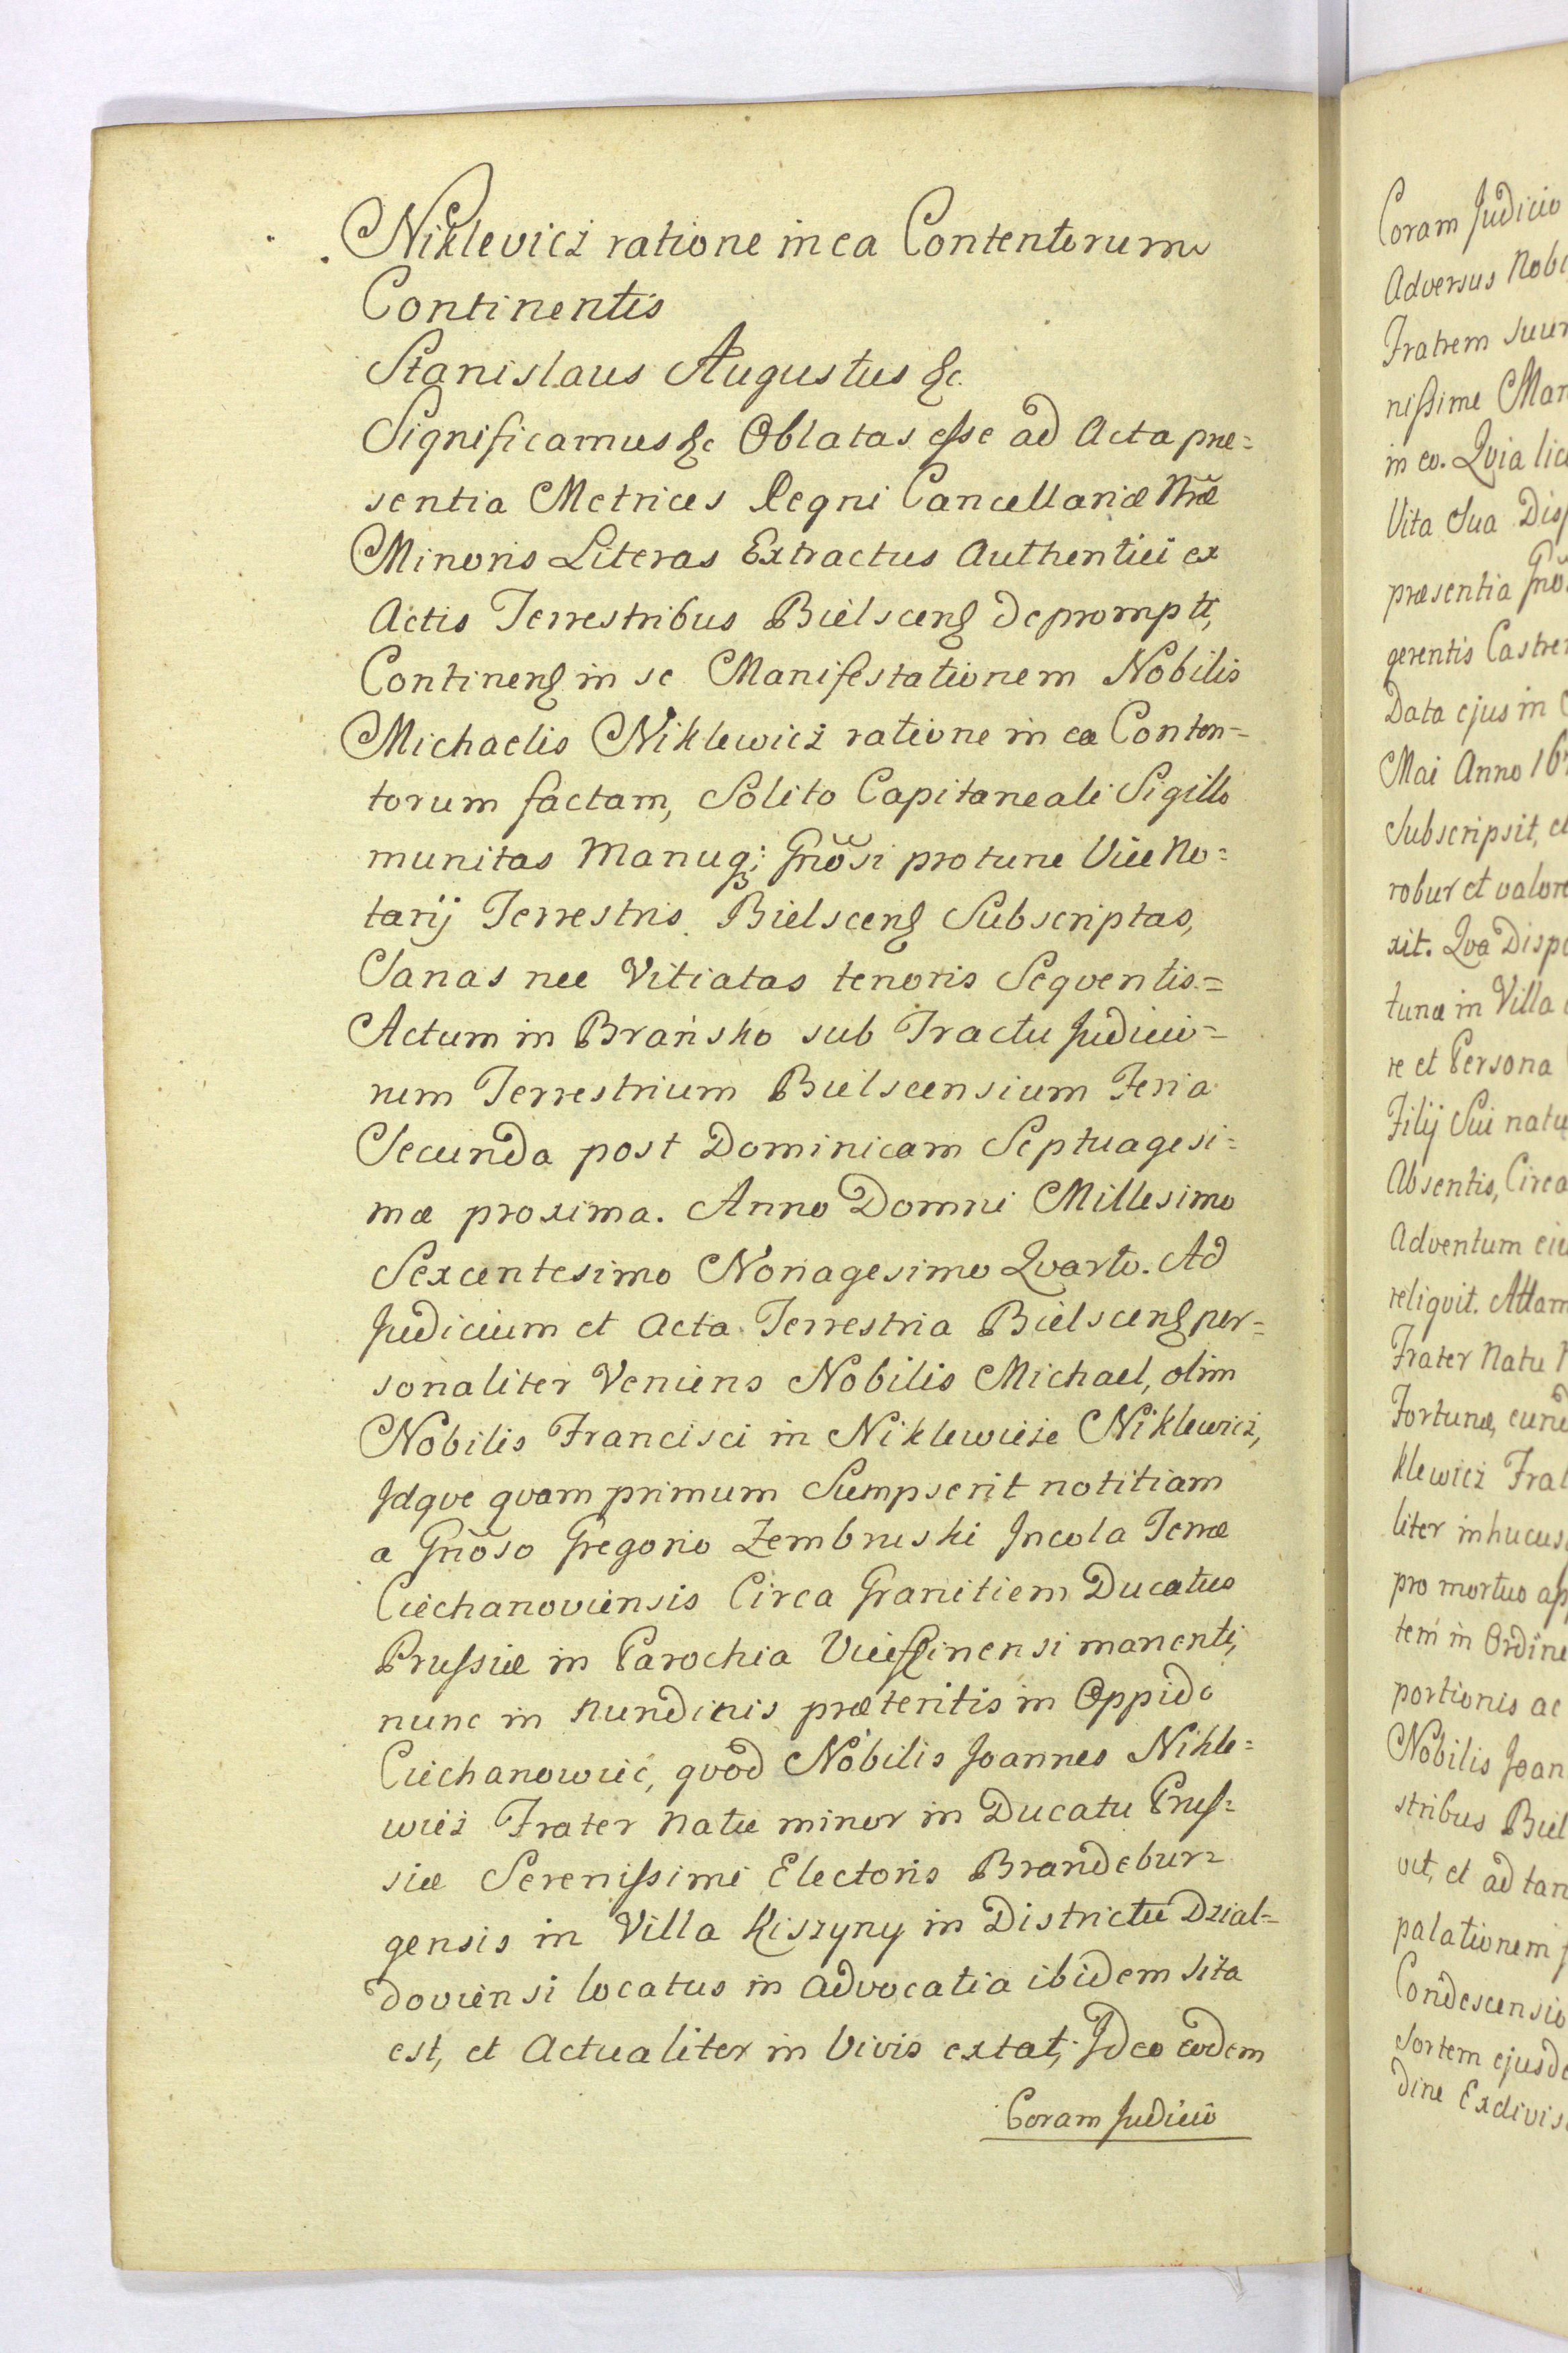 Niklevicz ratione in ea Contentorum
Continentis
Stanislaus Augustus &c.
Significamus &c Oblatas esse ad Acta præ=
sentia Metrices Regni Cancellariæ Nræ
Minoris Literas Extractus Authentici ex
Actis Terrestribus Bielscens deprompti,
Continens in se Manifestationem Nobilis
Michaelis Niklewicz ratione in ea Conten=
torum factam, Solito Capitaneali Sigillo
munitas Manuq; Gnosi protunc Vice No=
tarij Terrestris Bielscens Subscriptas,
Sanas nec Vitiatas tenoris Seqventis =
Actum in Brańsko sub Tractu Judicio=
rum Terrestrium Bielscensium Feria
Secunda post Dominicam Septuagesi=
mæ proxima. Anno Domni Millesimo
Sexcentesimo Nonagesimo Qvarto. Ad
Judicium et Acta Terrestria Bielscens per=
sonaliter Veniens Nobilis Michael, olim
Nobilis Francisci in Niklewicze Niklewicz,
Idqve qvam primum Sumpserit notitiam
a Gnoso Gregorio Zembruski Incola Terræ
Ciechanoviensis Circa Granitiem Ducatus
Prussiæ in Parochia manenti,
nunc in nundinis præteritis in Oppido
Ciechanowiec, qvod Nobilis Joannes Nikle=
wicz Frater Natu minor in Ducatu Prus=
siæ Serenissimi Electoris Brandebur=
gensis in Villa Kiszyny in Districtu Dzial=
doviensi locatus in Advocatia ibidem sita
est, et Actualiter in Vivis extat, Ideo eodem
Coram Judicio
Coram Judicio
Adversus Nobi
Fratrem Suum
nissime Man
in eo. Qvia lic
Vita Sua Disp
præsentia Gno
gerentis Castre
Data ejus in
Mai Anno 16
Subscripsit, et
robur et valore
xit. Qva Dispo
tunæ in Villa
re et Persona
Filij Sui natu
Absentis, Circa
Adventum eiu
reliqvit. Attam
Frater Natu
Fortunæ, eund
klewicz Frat
liter inhucus
pro mortuo
tem in Ordine
portionis ac
Nobilis Joan
stribus Biel
vit, et ad tan
palationem
Condescensio
Sortem ejusde
dine Exdivis